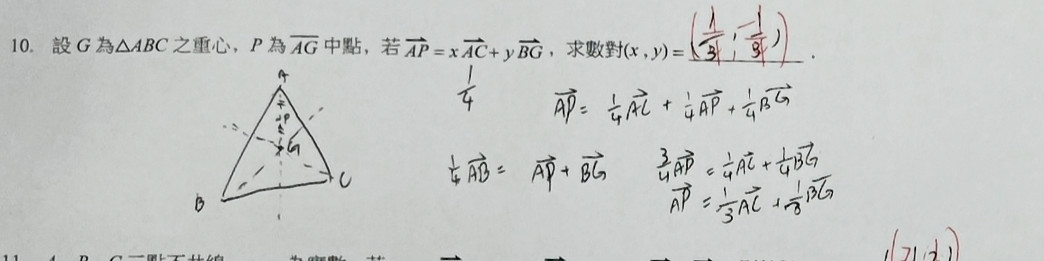 10. 設 G 為△ABC 之重心，P 為 \overline{AG} 中點，若 \overrightarrow{AP} = x\overrightarrow{AC} + y\overrightarrow{BG}，求數對(x , y) = (1/3, -1/3).
1/4
\overrightarrow{AP} = 1/4 \overrightarrow{AC} + 1/4 \overrightarrow{AP} + 1/4 \overrightarrow{BG}
A
P
G
B
C
1/4 \overrightarrow{AB} = \overrightarrow{AP} + \overrightarrow{BG}
3/4 \overrightarrow{AP} = 1/4 \overrightarrow{AC} + 1/4 \overrightarrow{BG}
\overrightarrow{AP} = 1/3 \overrightarrow{AC} + 1/3 \overrightarrow{BG}